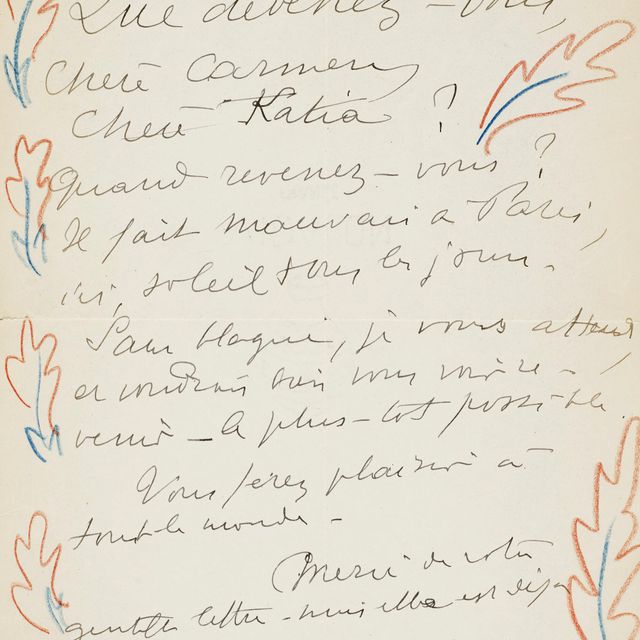 Que devenez-vous,
Chère Carmen,
Chère Katia ?
Quand revenez-vous ?
Il fait mauvais à Paris,
ici, soleil tous les jours.
Sans blague, je vous attend,
et voudrais bien vous voir re-
venir - le plus-tôt possible.
Vous ferez plaisir à
tout le monde -
Merci de votre
gentille lettre - mais elle est déjà